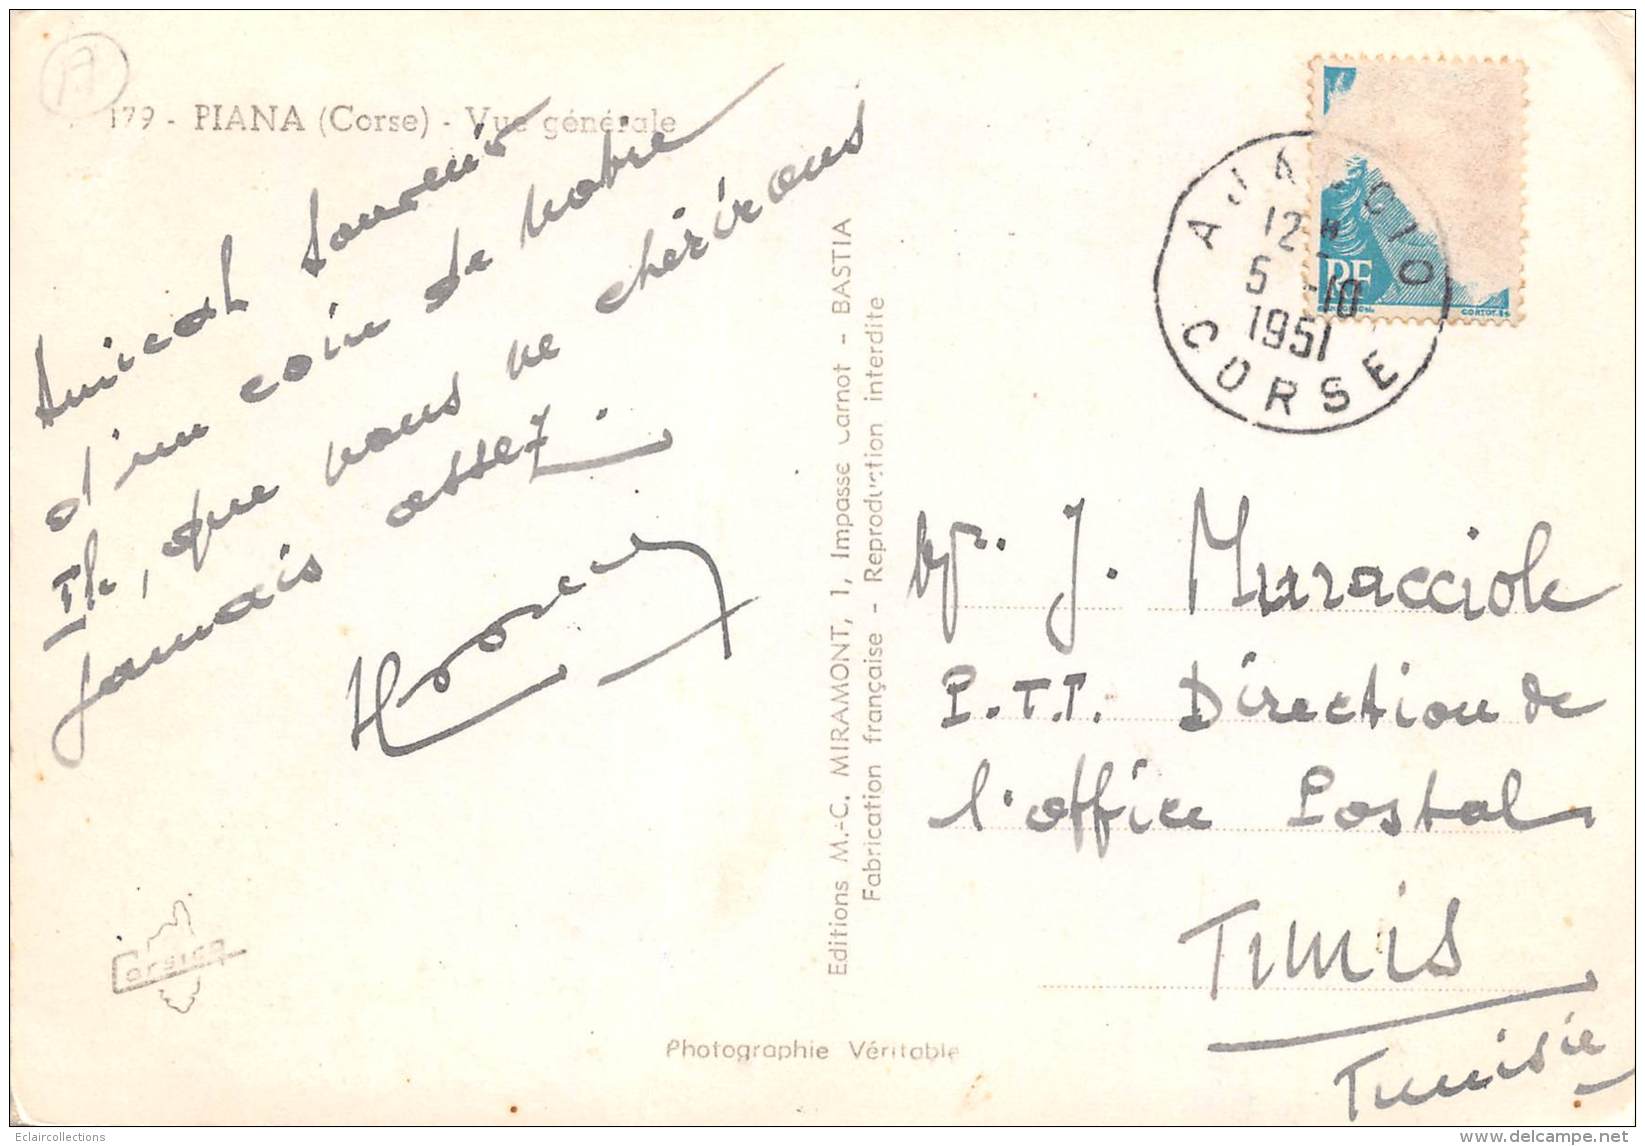 179 - PIANA (Corse) - Vue générale
Amical Souvenir
d'un coin de notre
Ile, que nous ne chérirons
jamais assez.
Editions M.-C. MIRAMONT, 1, Impasse Carnot - BASTIA
Fabrication française - Reproduction interdite
AJACCIO
12 H
5 -10
1951
CORSE
RF
CORTOT
Mr. J. Muracciole
P.T.T. Direction de
l'office Postal
Tunis
Tunisie
Corsica
Photographie Véritable
Eclaircollections
www.delcampe.net